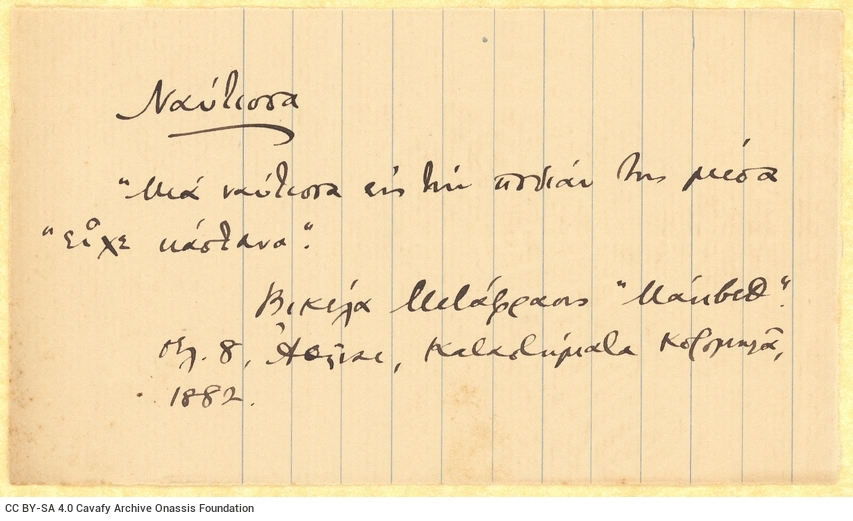 Ναύτισσα
"Μιά ναύτισσα εις την ποδιάν της μέσα
"είχε κάστανα".
Βικέλα Μετάφρασις "Μάκβεθ".
σελ. 8, Ἀθῆναι, Καταστήματα Κορομηλᾶ,
1882.
CC BY-SA 4.0 Cavafy Archive Onassis Foundation